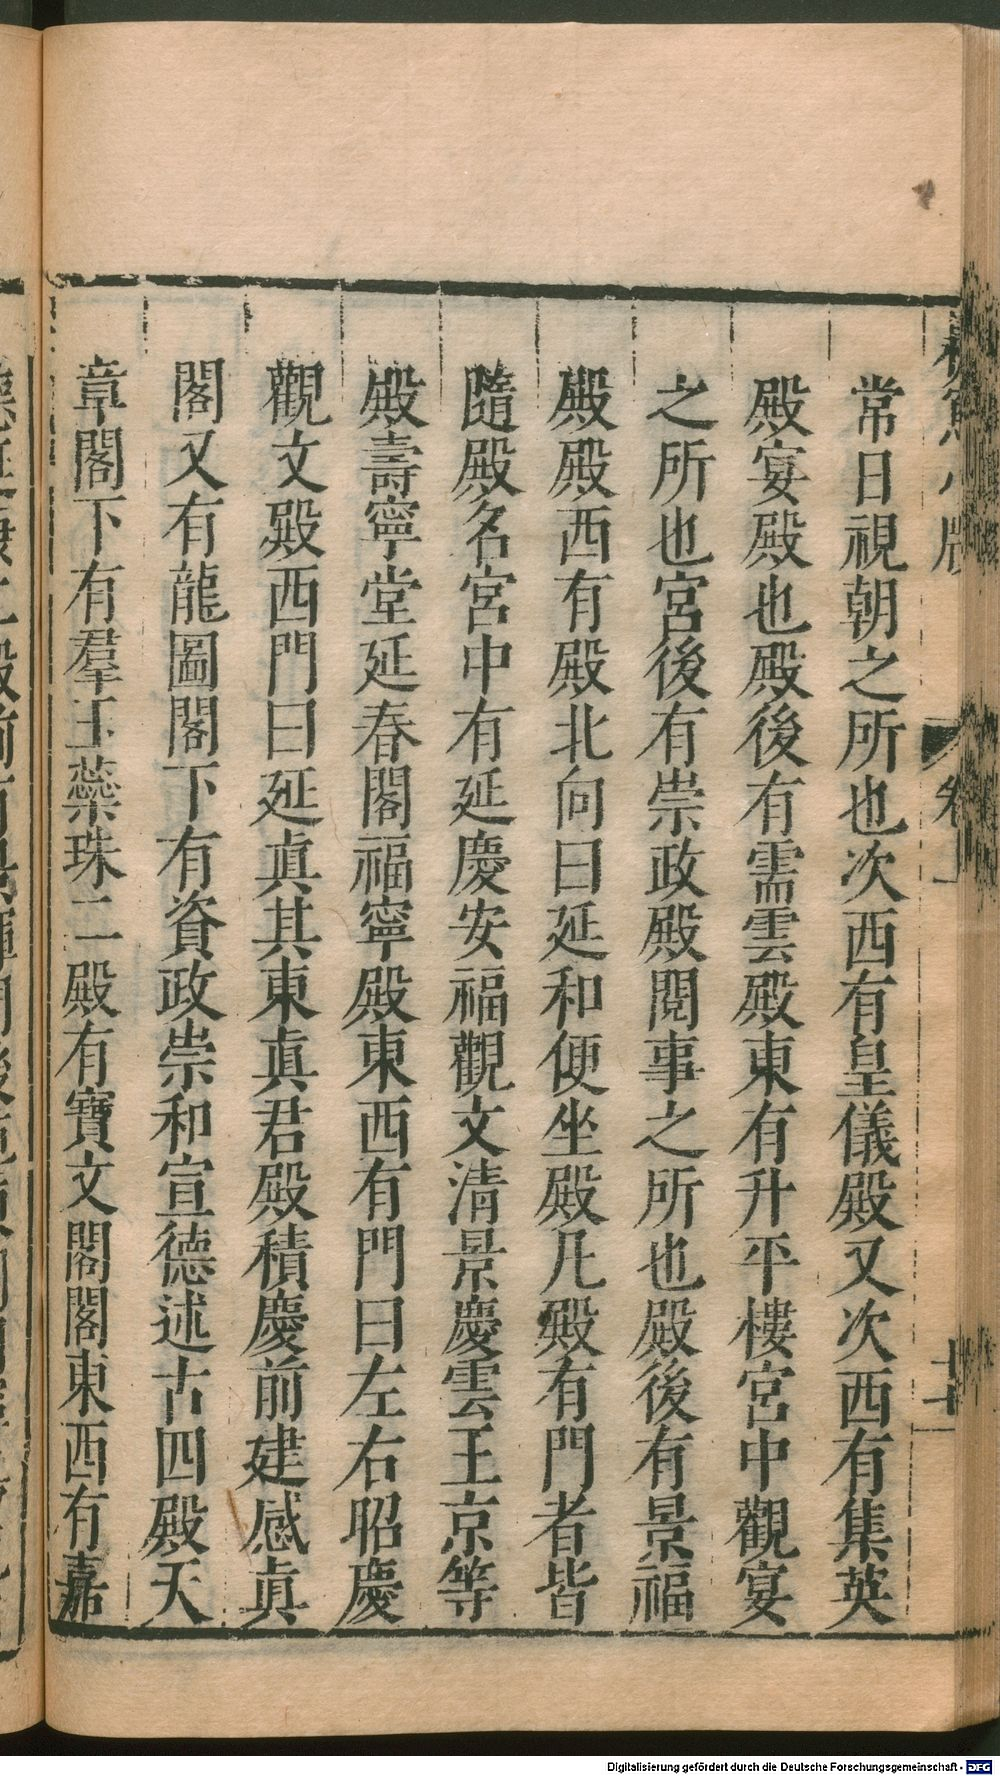 常日視朝之所也次西有皇儀殿又次西有集英
殿宴殿也殿後有需雲殿東有升平樓宮中觀宴
之所也宮後有崇政殿閱事之所也殿後有景福
殿殿西有殿北向曰延和便坐殿凡殿有門者皆
隨殿名宮中有延慶安福觀文清景慶雲王京等
殿壽寧堂延春閣福寧殿東西有門曰左右昭慶
觀文殿西門曰延真其東真君殿積慶前建感真
閣又有龍圖閣下有資政崇和宣德述古四殿天
章閣下有羣玉蘂珠二殿有寶文閣閣東西有嘉
Digitalisierung gefördert durch die Deutsche Forschungsgemeinschaft - DFG